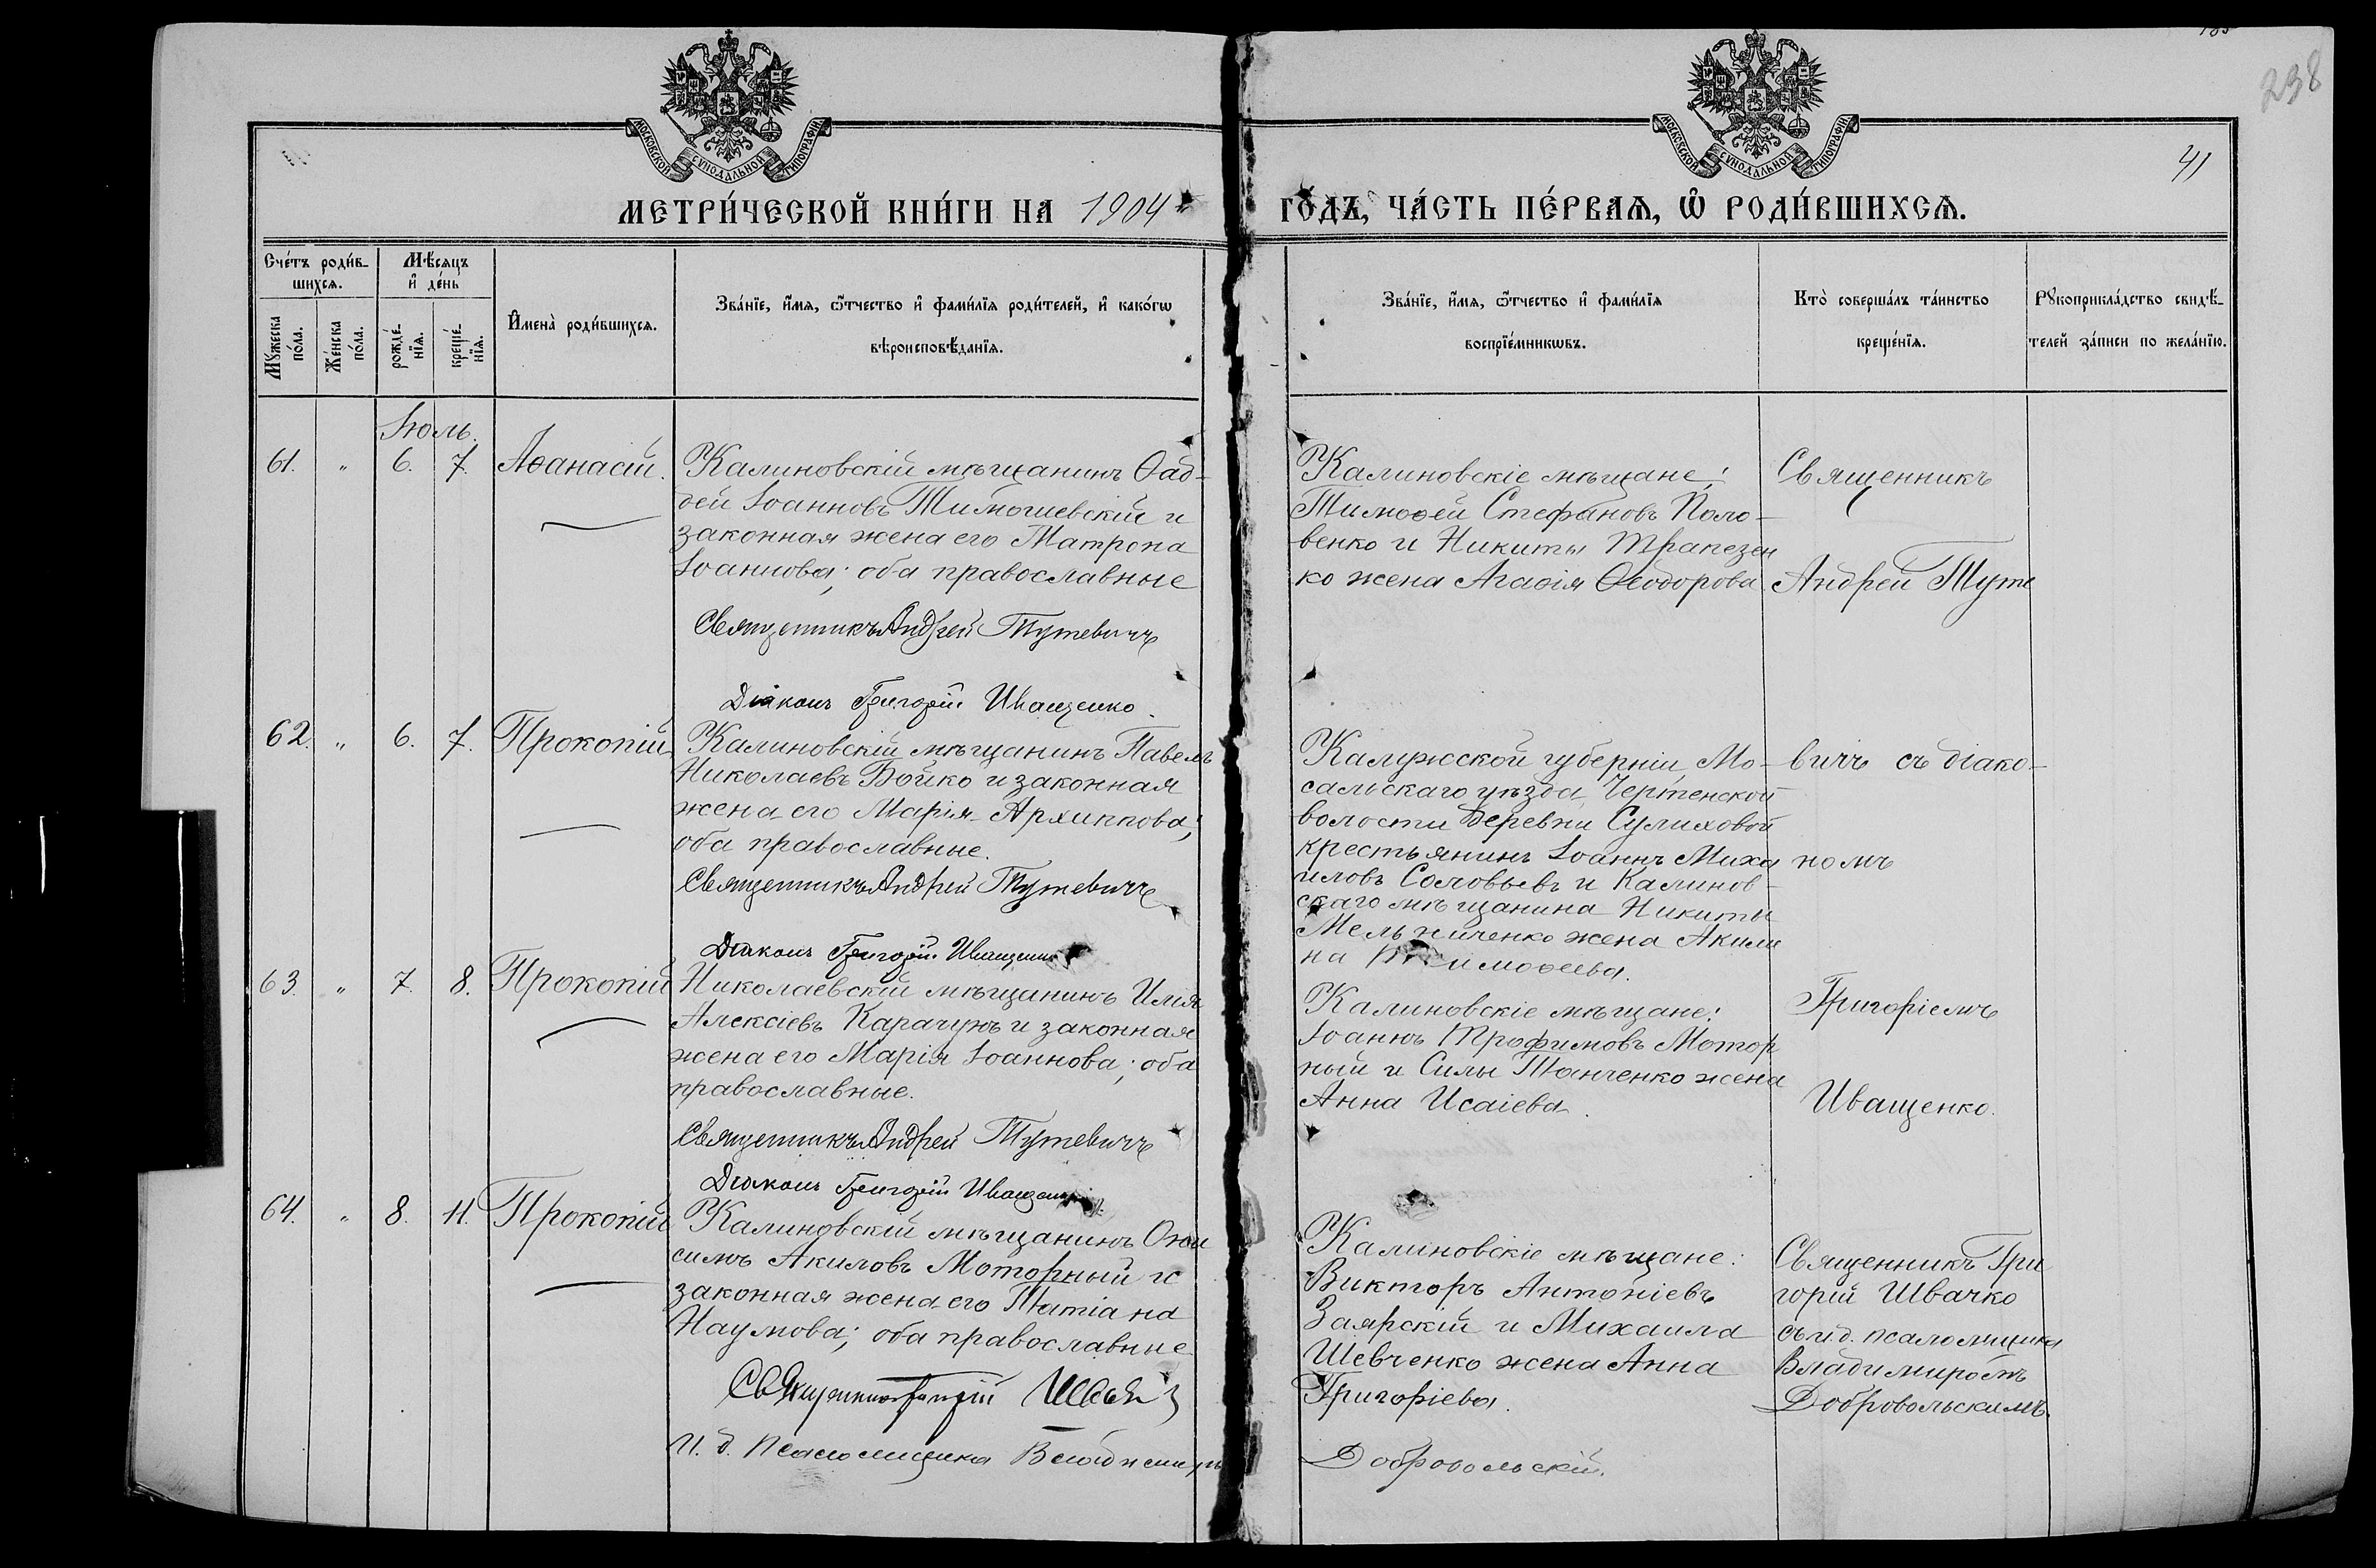 238
41
МОСКОВСКОЙ СѴНОДАЛЬНОЙ ТИПОГРАФІИ
МОСКОВСКОЙ СѴНОДАЛЬНОЙ ТИПОГРАФІИ
МЕТРИ́ЧЕСКОЙ КНИ́ГИ НА 1904
ГО́ДЪ, ЧА́СТЬ ПЕ́РВАѦ, Ѡ҆ РОДИ́ВШИХСѦ.
Сче́тъ роди́в-
шихсѧ.
Мꙋ́жеска
по́ла.
Же́нска
по́ла.
Мѣ́сѧцъ
и҆ де́нь
рожде́-
нїѧ.
креще́-
нїѧ.
И҆мена̀ роди́вшихсѧ.
Зва́нїе, и҆́мѧ, ѻ҆́тчество и҆ фами́лїѧ роди́телей, и҆ како́гѡ
вѣроисповѣ́данїѧ.
Зва́нїе, и҆́мѧ, ѻ҆́тчество и҆ фами́лїѧ
воспрїе́мникѡвъ.
Кто̀ соверша́лъ та́инство
креще́нїѧ.
Рꙋкоприкла́дство свидѣ́-
телей за́писи по жела́нїю.
Іюль.
61. " 6. 7. Аѳанасій.
Калиновскій мѣщанинъ Ѳад-
дей Іоанновъ Тимошевскій и
законная жена его Матрона
Іоаннова; оба православные
Священникъ Андрей Тутевичъ
Діаконъ Григорій Иващенко.
Калиновскіе мѣщане:
Тимоѳей Стефановъ Поло-
венко и Никиты Трапезен
ко жена Агаѳія Ѳеодорова.
Священникъ
Андрей Туте
62. " 6. 7. Прокопій
Калиновскій мѣщанинъ Павелъ
Николаевъ Бойко и законная
жена его Марія Архиппова;
оба православные.
Священникъ Андрей Тутевичъ
Діаконъ Григорій Иващенко
Калужской губерніи, Мо-
сальскаго уѣзда, Чертенской
волости деревни Сулиховой
крестьянинъ Іоаннъ Миха
иловъ Соловьевъ и Калинов-
скаго мѣщанина Никиты
Мельниченко жена Акили
на Тимоѳеева.
вичъ съ діако-
номъ
63. " 7. 8. Прокопій
Николаевскій мѣщанинъ Илія
Алексіевъ Карачунъ и законная
жена его Марія Іоаннова; оба
православные.
Священникъ Андрей Тутевичъ
Діаконъ Григорій Иващенко
Калиновскіе мѣщане:
Іоаннъ Трофимовъ Мотор
ный и Силы Танченко жена
Анна Исаіева.
Григоріемъ
Иващенко.
64. " 8. 11. Прокопій
Калиновскій мѣщанинъ Они
симъ Акиловъ Моторный и
законная жена его Татіана
Наумова; оба православные
Священникъ Григорій Швачко
И. д. псаломщика Владиміръ
Калиновскіе мѣщане:
Викторъ Антоніевъ
Заярскій и Михаила
Шевченко жена Анна
Григоріева.
Добровольскій.
Священникъ Гри
горій Швачко
съ и. д. псаломщика
Владиміромъ
Добровольскимъ.